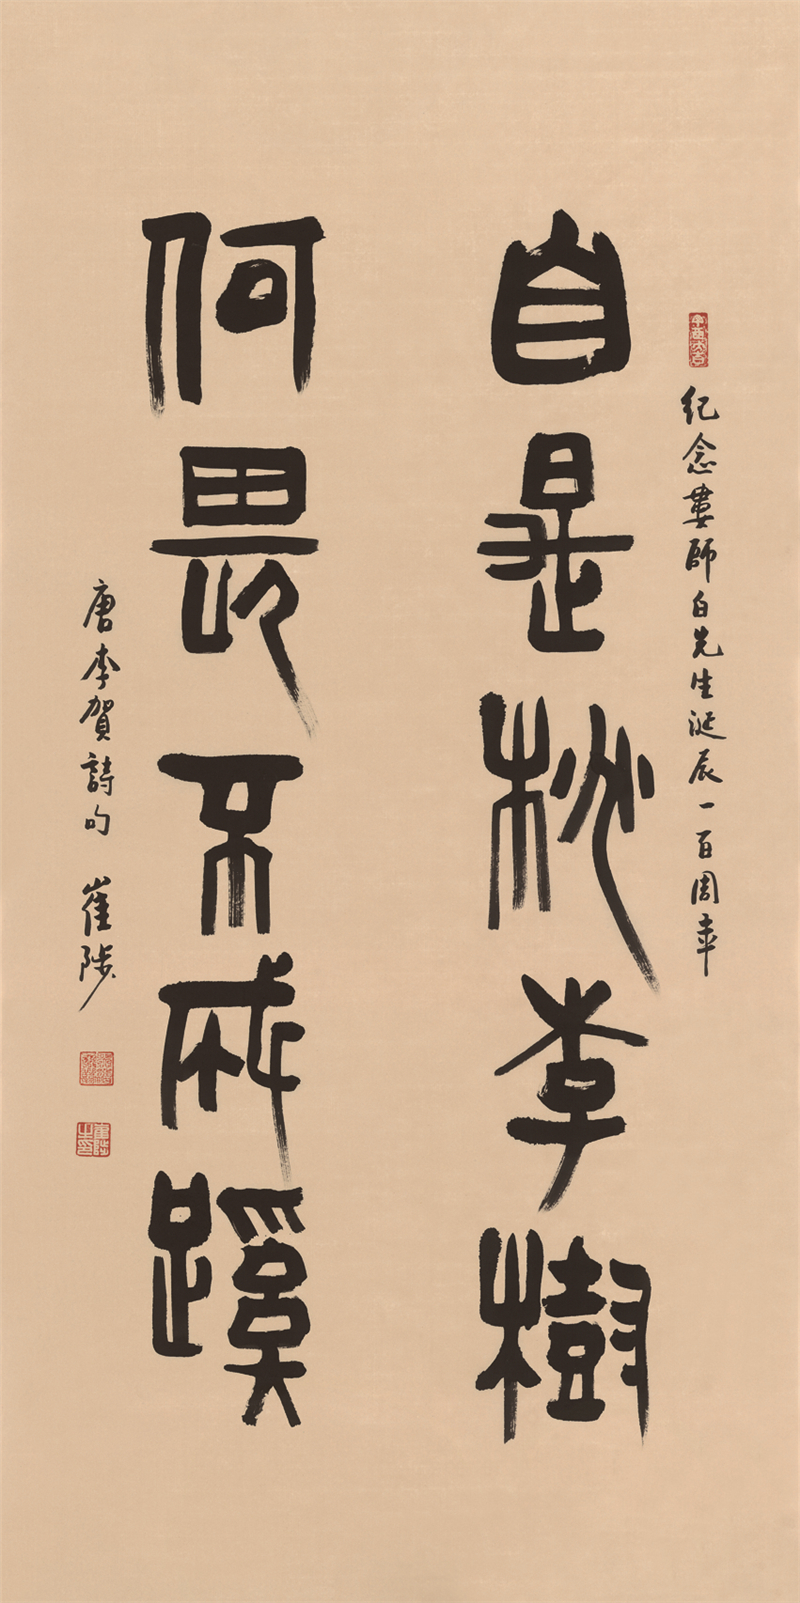 紀念婁師白先生誕辰一百周年
自是桃李樹
何畏不成蹊
唐李賀詩句 崔陟
崔陟之印